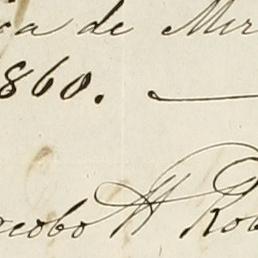 ca de Mer
860. —
acobo H Rob